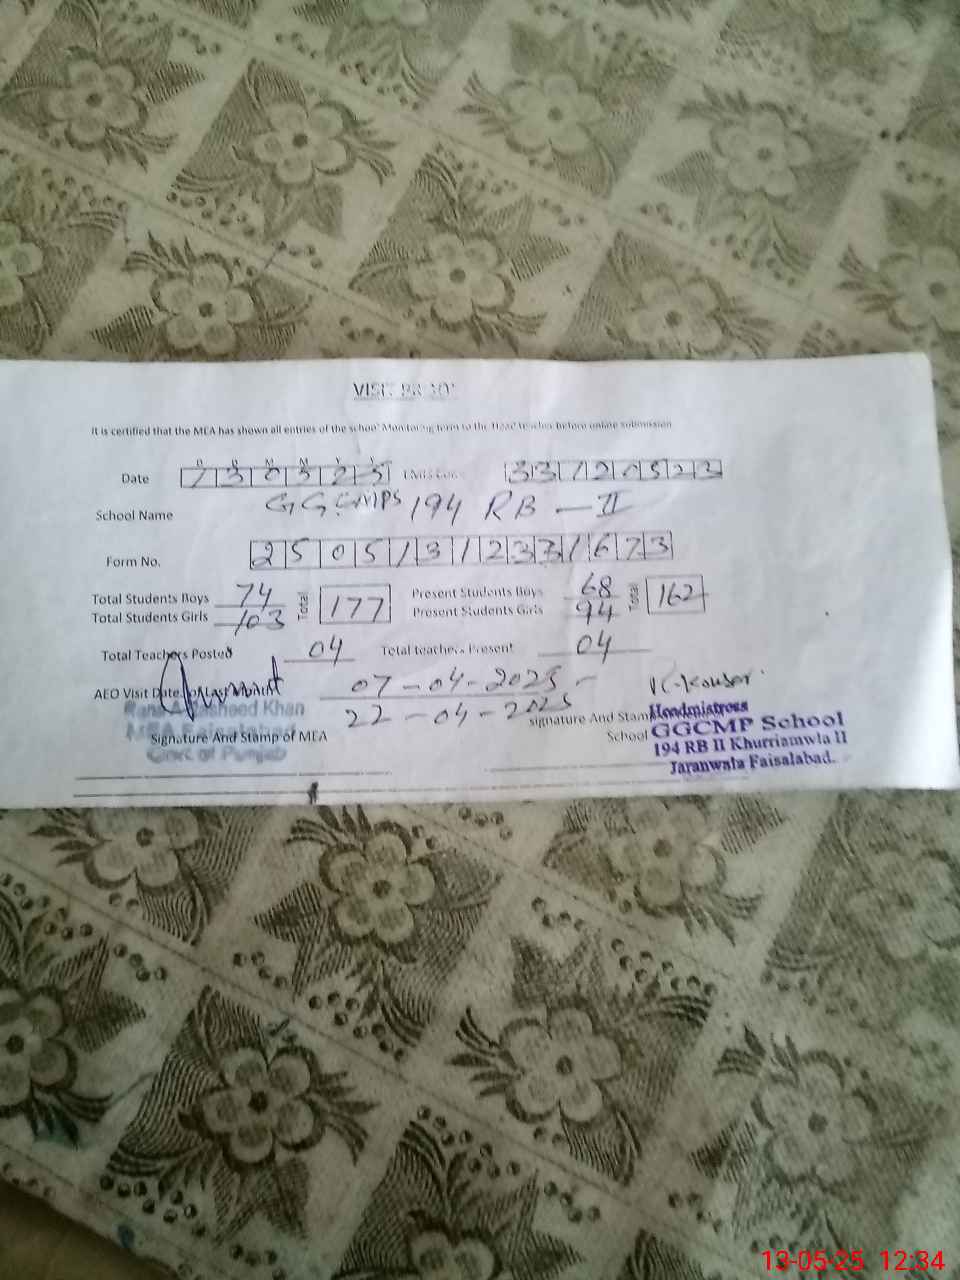 VISIT PROOF
It is certified that the MEA has shown all entries of the school Monitoring form to the Head teacher before online submission
D D M M Y Y
Date 130525 33120523
School Name GGCMPS 194 RB - II
Form No. 25051312331673
Total Students Boys 74 Total 177 Present Students Boys 68 Total 162
Total Students Girls 103 Present Students Girls 94
Total Teachers Posted 04 Total teachers Present 04
AEO Visit Date of Last Month 07-04-2025 K-Kousar
22-04-2025
Rana A Rasheed Khan
Signature And Stamp of MEA
Govt of Punjab
signature And Stamp
School
Headmistress
GGCMP School
194 RB II Khurrianwla II
Jaranwala Faisalabad.
13-05-25 12:34